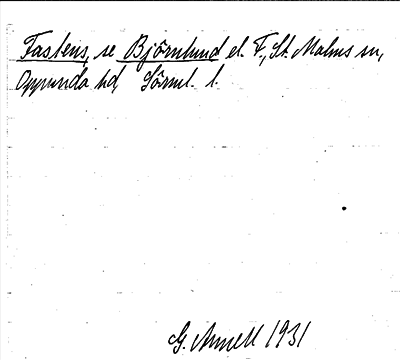 Fastens, se Björnlund el. F., St. Malms sn,
Oppunda hd, Sörml. l.
G. Annell 1931